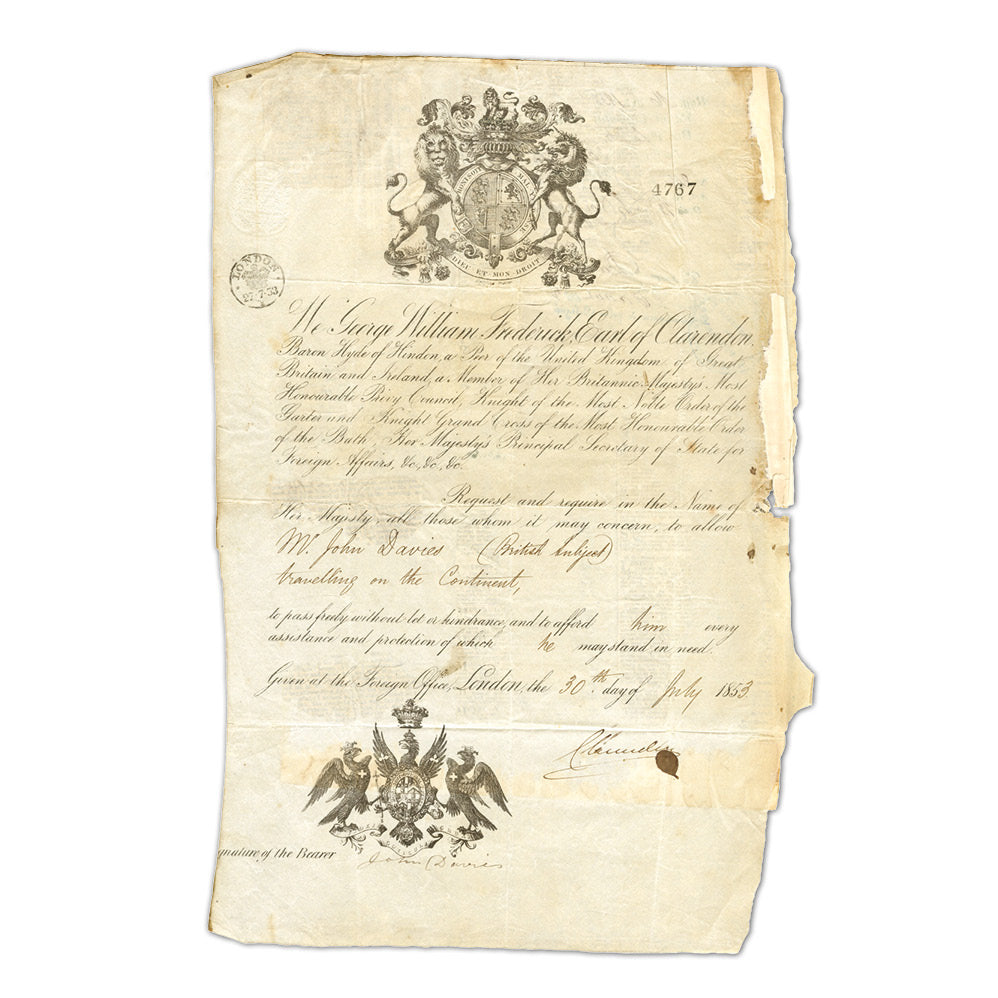 HONI SOIT QUI MAL Y PENSE
DIEU ET MON DROIT
4767
LONDON
27·7·53
We George William Frederick, Earl of Clarendon,
Baron Hyde of Hindon, a Peer of the United Kingdom of Great
Britain and Ireland, a Member of Her Britannic Majesty's Most
Honourable Privy Council, Knight of the Most Noble Order of the
Garter and Knight Grand Cross of the Most Honourable Order
of the Bath, Her Majesty's Principal Secretary of State for
Foreign Affairs, &c, &c, &c.
Request and require in the Name of
Her Majesty, all those whom it may concern, to allow
Mr. John Davies (British Subject)
travelling on the Continent,
to pass freely without let or hindrance, and to afford him every
assistance and protection of which he may stand in need.
Given at the Foreign Office, London, the 30th. day of July 1853.
Clarendon
gnature of the Bearer
John Davies